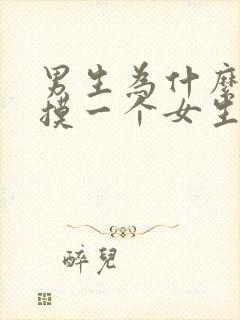 男生為什麼
摸一个女生
醉兒